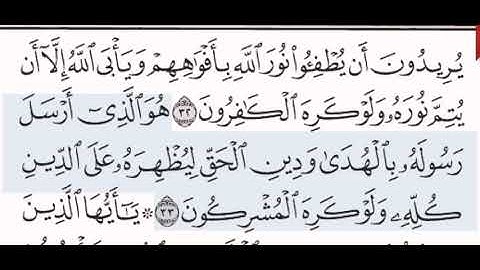 يُرِيدُونَ أَن يُطْفِـُٔوا۟ نُورَ ٱللَّهِ بِأَفْوَٰهِهِمْ وَيَأْبَى ٱللَّهُ إِلَّآ أَن
يُتِمَّ نُورَهُۥ وَلَوْ كَرِهَ ٱلْكَٰفِرُونَ ٣٢ هُوَ ٱلَّذِىٓ أَرْسَلَ
رَسُولَهُۥ بِٱلْهُدَىٰ وَدِينِ ٱلْحَقِّ لِيُظْهِرَهُۥ عَلَى ٱلدِّينِ
كُلِّهِۦ وَلَوْ كَرِهَ ٱلْمُشْرِكُونَ ٣٣ ۞ يَٰٓأَيُّهَا ٱلَّذِينَ